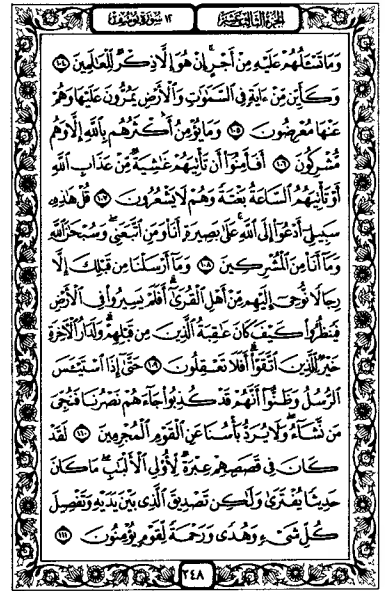 الجزء الثالث عشر
١٢ سورة يوسف
وَمَا تَسْـَٔلُهُمْ عَلَيْهِ مِنْ أَجْرٍ ۚ إِنْ هُوَ إِلَّا ذِكْرٌ لِّلْعَٰلَمِينَ ١٠٤
وَكَأَيِّن مِّنْ ءَايَةٍ فِي ٱلسَّمَٰوَٰتِ وَٱلْأَرْضِ يَمُرُّونَ عَلَيْهَا وَهُمْ
عَنْهَا مُعْرِضُونَ ١٠٥ وَمَا يُؤْمِنُ أَكْثَرُهُم بِٱللَّهِ إِلَّا وَهُم
مُّشْرِكُونَ ١٠٦ أَفَأَمِنُوٓا۟ أَن تَأْتِيَهُمْ غَٰشِيَةٌ مِّنْ عَذَابِ ٱللَّهِ
أَوْ تَأْتِيَهُمُ ٱلسَّاعَةُ بَغْتَةً وَهُمْ لَا يَشْعُرُونَ ١٠٧ قُلْ هَٰذِهِۦ
سَبِيلِيٓ أَدْعُوٓا۟ إِلَى ٱللَّهِ ۚ عَلَىٰ بَصِيرَةٍ أَنَا۠ وَمَنِ ٱتَّبَعَنِي ۖ وَسُبْحَٰنَ ٱللَّهِ
وَمَآ أَنَا۠ مِنَ ٱلْمُشْرِكِينَ ١٠٨ وَمَآ أَرْسَلْنَا مِن قَبْلِكَ إِلَّا
رِجَالًا نُّوحِيٓ إِلَيْهِم مِّنْ أَهْلِ ٱلْقُرَىٰٓ ۗ أَفَلَمْ يَسِيرُوا۟ فِي ٱلْأَرْضِ
فَيَنظُرُوا۟ كَيْفَ كَانَ عَٰقِبَةُ ٱلَّذِينَ مِن قَبْلِهِمْ ۗ وَلَدَارُ ٱلْـَٔاخِرَةِ
خَيْرٌ لِّلَّذِينَ ٱتَّقَوْا۟ ۗ أَفَلَا تَعْقِلُونَ ١٠٩ حَتَّىٰٓ إِذَا ٱسْتَيْـَٔسَ
ٱلرُّسُلُ وَظَنُّوٓا۟ أَنَّهُمْ قَدْ كُذِبُوا۟ جَآءَهُمْ نَصْرُنَا فَنُجِّيَ
مَن نَّشَآءُ ۖ وَلَا يُرَدُّ بَأْسُنَا عَنِ ٱلْقَوْمِ ٱلْمُجْرِمِينَ ١١٠ لَقَدْ
كَانَ فِي قَصَصِهِمْ عِبْرَةٌ لِّأُو۟لِي ٱلْأَلْبَٰبِ ۗ مَا كَانَ
حَدِيثًا يُفْتَرَىٰ وَلَٰكِن تَصْدِيقَ ٱلَّذِي بَيْنَ يَدَيْهِ وَتَفْصِيلَ
كُلِّ شَيْءٍ وَهُدًى وَرَحْمَةً لِّقَوْمٍ يُؤْمِنُونَ ١١١
٢٤٨